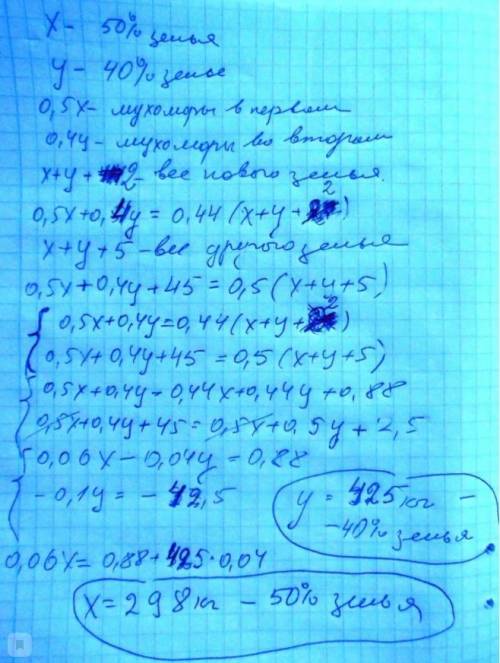 x - 50% зелья
y - 40% зелье
0,5x - мухоморы в первом
0,4y - мухоморы во втором
x+y+2 - вес нового зелья.
0,5x+0,4y = 0,44(x+y+2)
x+y+5 - вес другого зелья
0,5x+0,4y+45 = 0,5(x+y+5)
0,5x+0,4y=0,44(x+y+2)
0,5x+0,4y+45 = 0,5(x+y+5)
0,5x+0,4y-0,44x+0,44y+0,88
0,5x+0,4y+45 = 0,5x+0,5y+2,5
0,06x-0,04y = 0,88
-0,1y = -42,5
y = 425 кг -
-40% зелья
0,06x = 0,88+425·0,04
x = 298 кг - 50% зелья